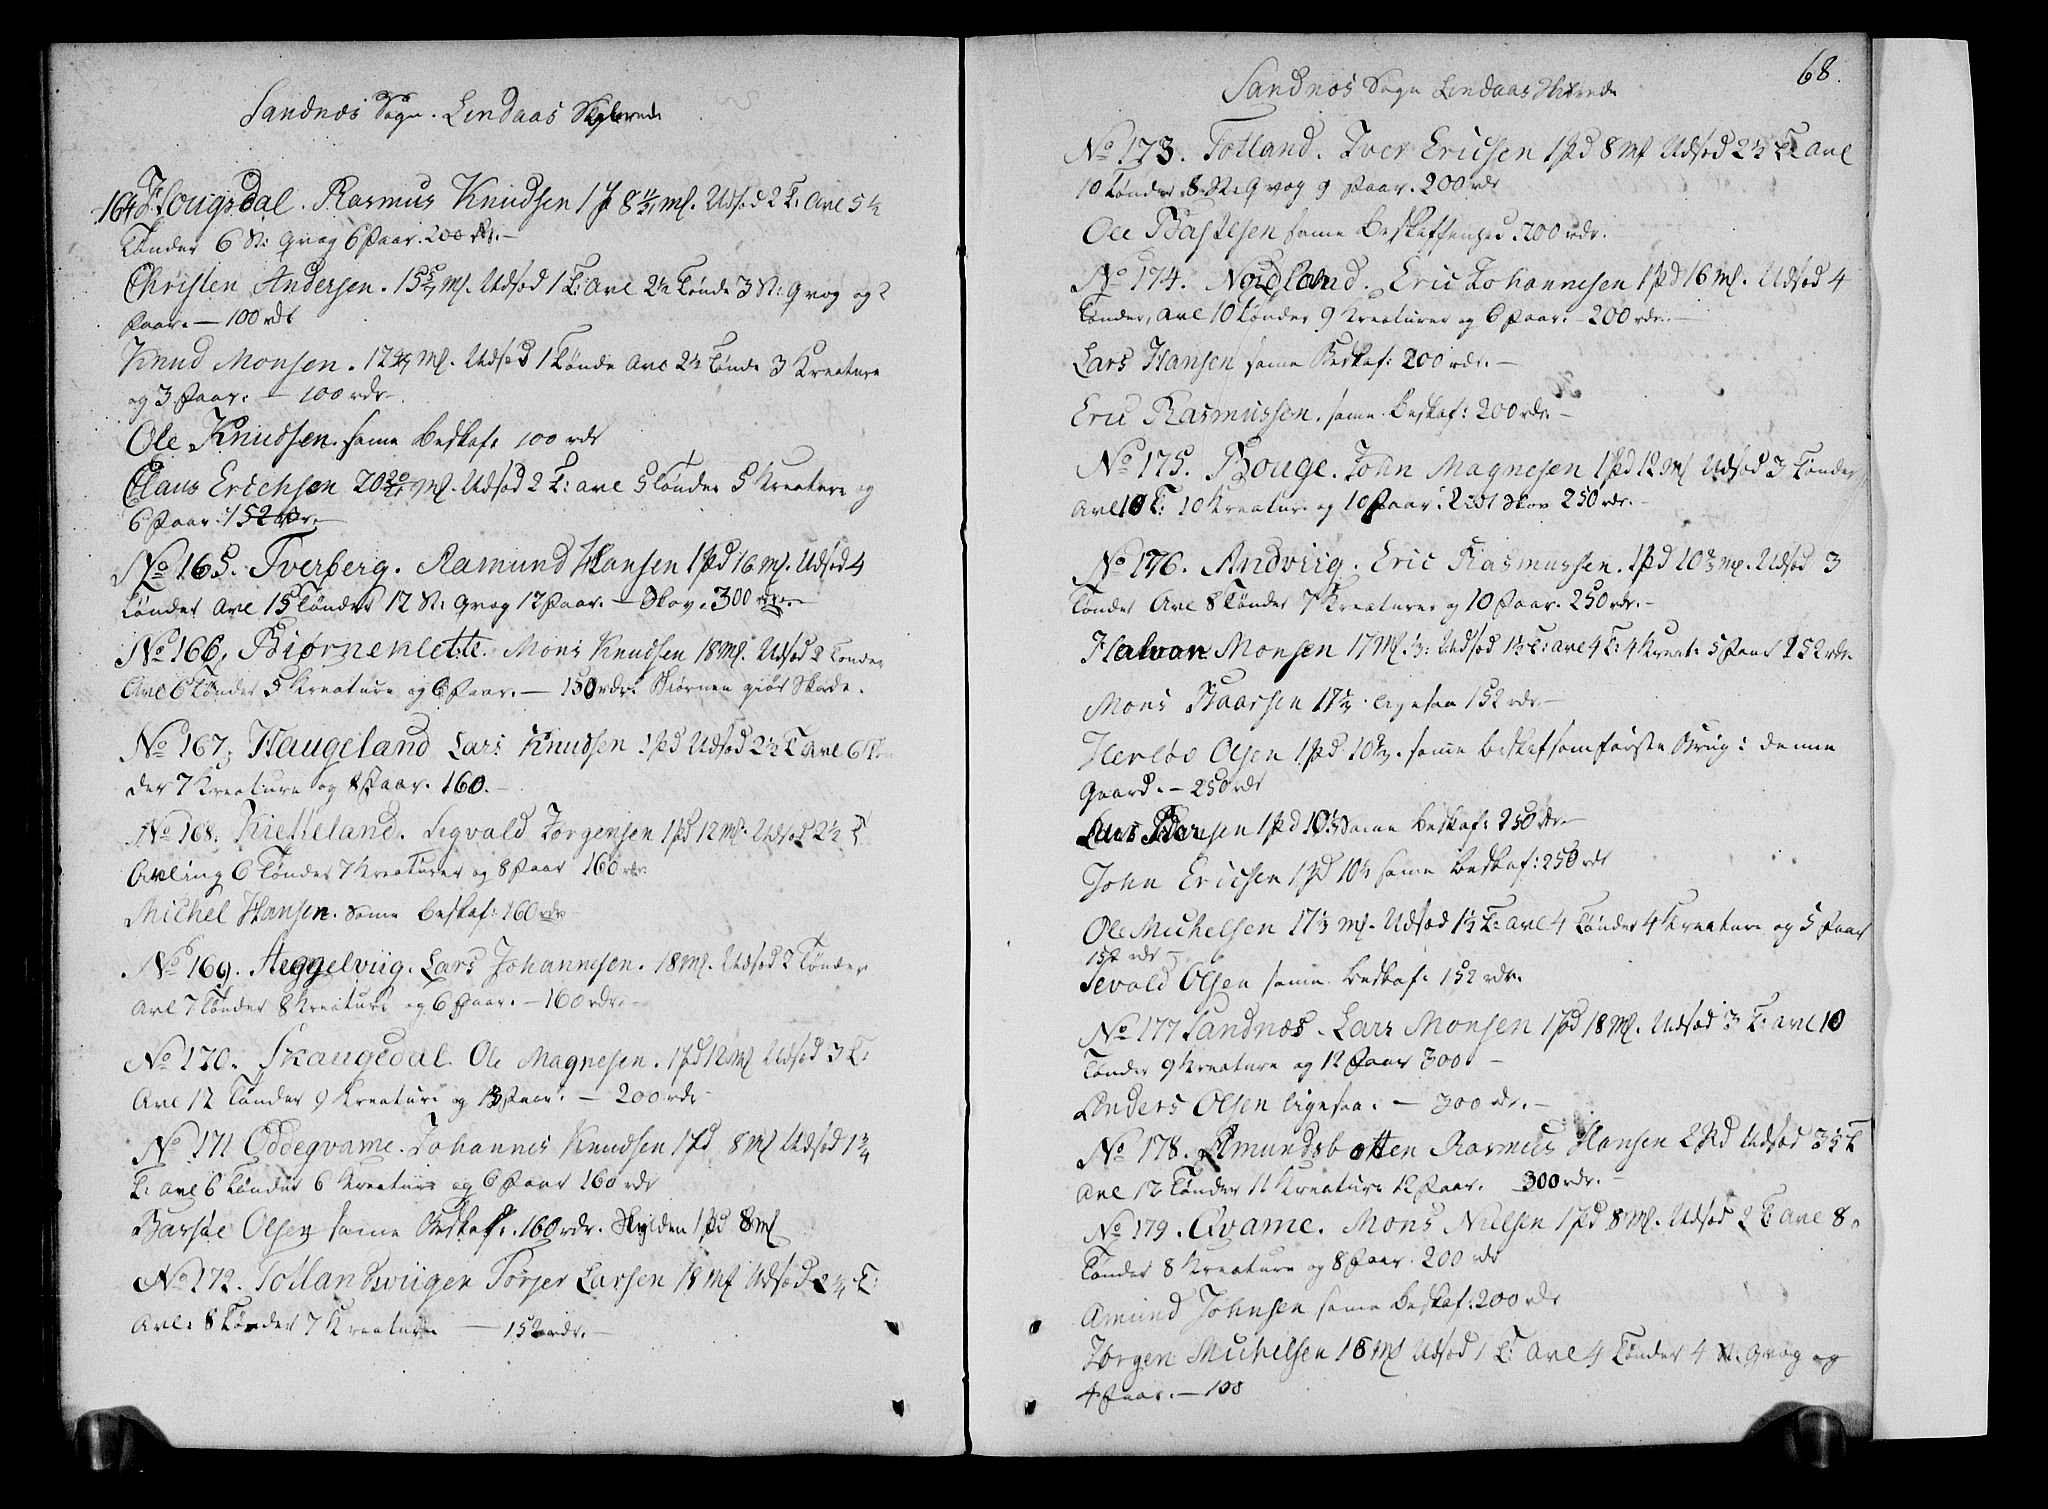 Sandnæs Sogn. Lindaas Skibrede
164 Hougsdal. Rasmus Knudsen 1 p 8 mL. Udsæd 2 T: Avl 5½
Tønder 6 St: qvæg 6 Faar. 200 rdr.
Christen Andersen. 15 mL. Udsæd 1 T: Avl 2½ Tønde 3 St: qvæg og 2
Faar. — 100 rdr
Knud Monsen. 12 mL. Udsæd 1 Tønde Avl 2½ Tønde 3 Kreature
og 3 Faar. — 100 rdr.
Ole Knudsen. same beskaf: 100 rdr
Claus Erichsen 20 mL. Udsæd 2 T: avl 5 Tønder 5 Kreature og
6 Faar: 152 rdr.
No 165. Tverberg. Ramund Hansen 1 Pd 16 mL. Udsæd 4
Tønder Avl 15 Tønder 12 St: qvæg 12 Faar. — Skov. 300 rdr.
No 166. Biørneklette. Mons Knudsen 18 mL. Udsæd 2 Tønder
Avl 6 Tønder 5 Kreature og 6 Faar. — 150 rdr. Biørnen giør Skade.
No 167. Haugeland Lars Knudsen 1 Pd Udsæd 2½ T Avl 6 Tøn
der 7 Kreature og 8 Faar. 160.
No 168. Kielleland. Segvald Jørgensen 1 Pd 12 mL. Udsæd 2½ T
Avling 6 Tønder 7 Kreaturer og 8 Faar 160 rdr.
Michel Hansen. same beskaf: 160 rdr
No 169. Heggelviig. Lars Johannesen. 18 mL. Udsæd 2 Tønder
Avl 7 Tønder 8 Kreature og 6 Faar. — 160 rdr.
No 170. Skaugedal Ole Magnesen. 1 Pd 12 mL Udsæd 3 T:
Avl 12 Tønder 9 Kreature og 13 Faar. — 200 rdr
No 171 Oddeqvame. Johannes Knudsen 1 Pd 8 mL Udsæd 1¾
T: avl 6 Tønder 6 Kreature og 6 Faar 160 rdr
Barsøe Olsen same Beskaf: 160 rdr. Skylden 1 Pd 8 mL
No 172. Totlandsviigen Torger Larsen 18 mL Udsæd 2¼ T:
Avl: 8 Tønder 7 Kreature — 152 rdr. —
68.
Sandnæs Sogn Lindaas Skibrede
No 173. Totland. Iver Ericsen 1 Pd 8 mL Udsæd 2½ T: avl
10 Tønder 8 St: qvæg 9 Faar. 200 rdr
Ole Bastesen same Beskaffenhed. 200 rdr.
No 174. Nordland. Eric Johannesen 1 Pd 16 mL. Udsæd 4
Tønder, avl 10 Tønder 9 Kreaturer og 6 Faar. 200 rdr. —
Lars Hansen same Beskaf: 200 rdr. —
Eric Rasmussen. same beskaf: 200 rdr. —
No 175. Bouge. John Magnesen 1 Pd 12 mL Udsæd 3 Tønder
Avl 10 T: 10 Kreature og 10 Faar. Skov 250 rdr. —
No 176. Andviig. Eric Rasmussen. 1 Pd 10⅔ mL. Udsæd 3
Tønder Avl 8 Tønder 7 Kreaturer og 10 Faar. 250 rdr. —
Halvor Monsen 17 mL. Udsæd 1½ T: avl 4 T: 4 Kreat: 5 Faar 152 rdr.
Mons Haarsen 17⅓. ligesaa 152 rdr —
Herløv Olsen 1 Pd 10⅔. same beskaf som første Brug i denne
Gaard. — 250 rdr
Lars 1 Pd 10⅔ same beskaf: 250 rdr. —
John Ericsen 1 Pd 10⅔ same beskaf: 250 rdr
Ole Michelsen 17⅓ mL. Udsæd 1½ T: avl 4 Tønder 4 Kreature og 5 Faar
152 rdr —
Sevald Olsen same beskaf: 152 rdr.
No 177 Sandnæs. Lars Monsen 1 Pd 18 mL. Udsæd 3 T: avl 10
Tønder 9 Kreature og 12 Faar 300. —
Anders Olsen ligesaa. — 300 rdr. —
No 178. Amundsbotten Rasmus Hansen 2 Pd Udsæd 3½ T
Avl 12 Tønder 11 Kreature 12 Faar. 300 rdr. —
No 179. Qvame. Mons Nielsen 1 Pd 8 mL. Udsæd 2 T: avl 8
Tønder 8 Kreature og 8 Faar. 200 rdr
Amund Johnsen same beskaf: 200 rdr
Jørgen Michelsen 16 mL Udsæd 1 T: avl 4 Tønder 4 St: qvæg og
4 Faar. — 100